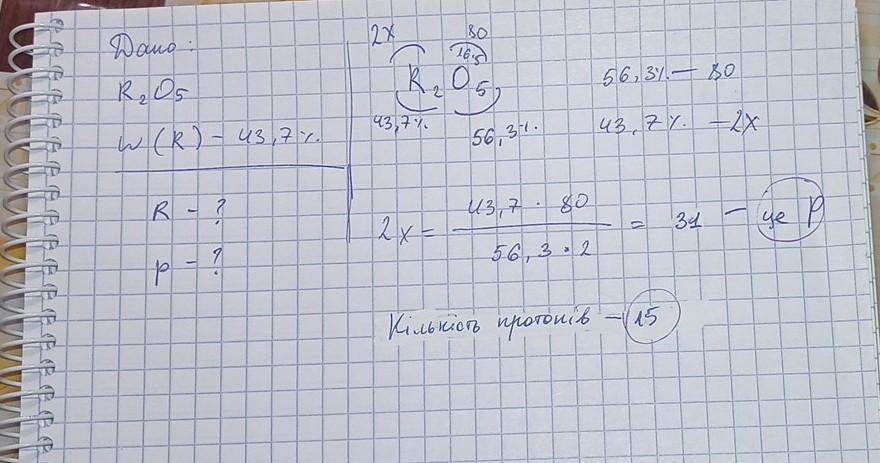 Дано:
R₂O₅
w(R) – 43,7%.
R – ?
p – ?
2x 80
16·5
R₂O₅
43,7%. 56,3%.
56,3% – 80
43,7% – 2x
2x = 43,7 · 80 / 56,3 · 2 = 31 – це P
Кількість протонів – 15